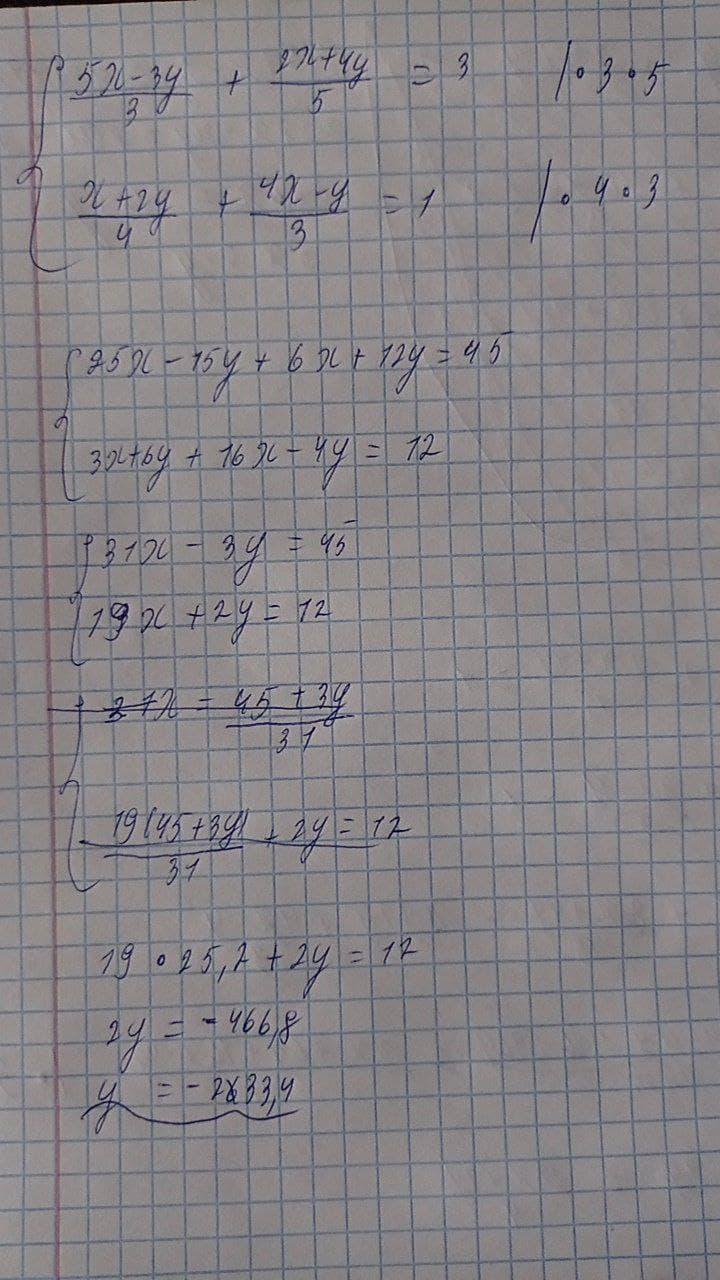 (5x-3y)/3 + (2x+4y)/5 = 3 | · 3 · 5
(x+2y)/4 + (4x-y)/3 = 1 | · 4 · 3
25x - 15y + 6x + 12y = 45
3x+6y + 16x - 4y = 12
31x - 3y = 45
19x + 2y = 12
x = (45 + 3y)/31
19(45+3y)/31 + 2y = 12
19 · 25,2 + 2y = 12
2y = -466,8
y = -233,4